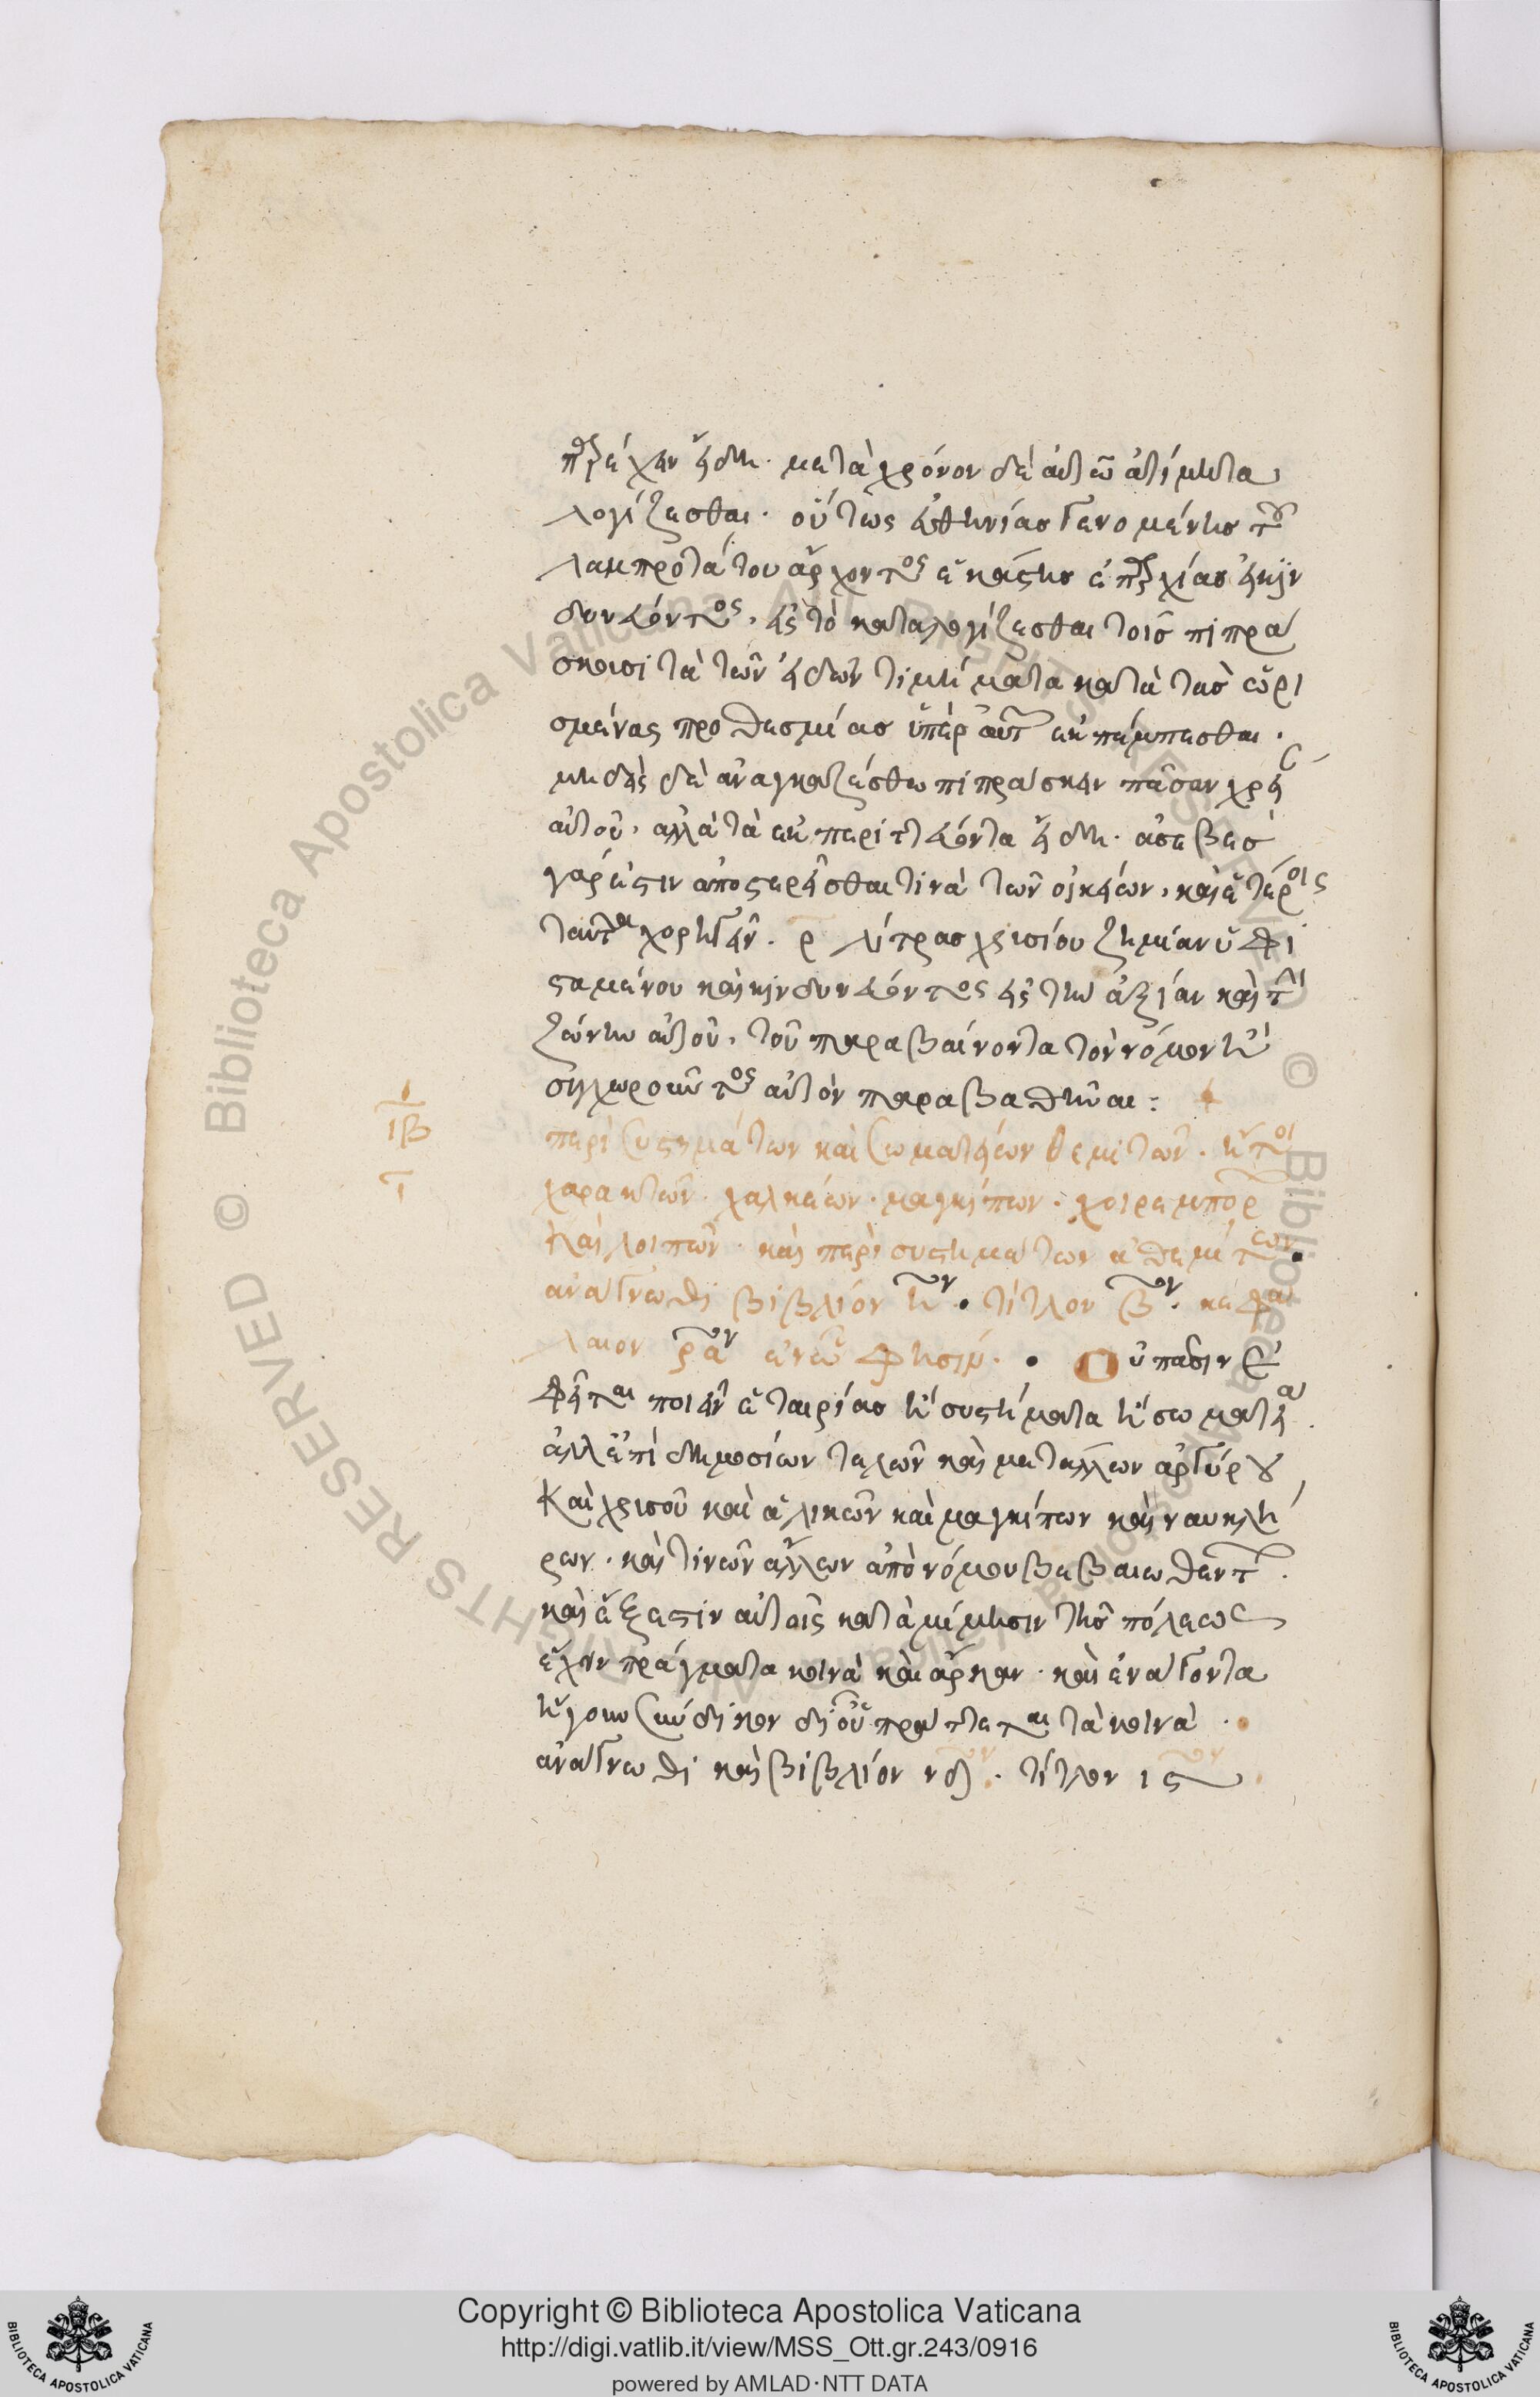 παρέχειν εἴδη. μετὰ χρόνον δὲ αὐτῶ ἀτίμητα
λογίζεσθαι. οὕτως εὐθηνίας γενομένης τοῦ
λαμπροτάτου ἄρχοντος ἑκάστης ἐπαρχίας κιν
δυνεύοντος, εἰς τὸ καταλογίζεσθαι τοῖς πιπρά
σκουσι τὰ τῶν εἰδῶν τιμήματα κατὰ τὰς ὡρι
σμένας προθεσμίας ὑπὲρ αὐτῶν ἐκπέμπεσθαι.
μηδεὶς δὲ ἀναγκαζέσθω πιπράσκειν πᾶσαν χρείαν
αὐτοῦ, ἀλλὰ τὰ ἐκπεριττεύοντα εἴδη. ἀσεβὲς
γάρ ἐστιν ἀποστερεῖσθαί τινα τῶν οἰκείων, καὶ ἑτέροις
ταῦτα χορηγεῖν. ρ λίτρας χρυσίου ζημίαν ὑφι
σταμένου καὶ κινδυνεύοντος εἰς τὴν ἀξίαν καὶ τὴν
ζώνην αὐτοῦ, τοῦ παραβαίνοντα τὸν νόμον ἢ
συγχωροῦντος αὐτὸν παραβαθῆναι:
ιβ
περὶ συστημάτων καὶ σωματείων θεμιτῶν. ἤτοι
χαρακτῶν. χαλκέων. μαγκίπων. χοιρεμπόρων
καὶ λοιπῶν. καὶ περὶ συστημάτων ἀθεμίτων.
ἀνάγνωθι βιβλίον ηον. τίτλον βον. κεφά
λαιον ραον ἐν ὧ φησίν. Οὐ πᾶσιν ἐ
φεῖται ποιεῖν ἑταιρίας ἢ συστήματα ἢ σωματεῖα.
ἀλλ' ἐπὶ δημοσίων τελῶν καὶ μετάλλων ἀργύρου
καὶ χρυσοῦ καὶ ἁλικῶν καὶ μαγκίπων καὶ ναυκλή
ρων. καὶ τινῶν ἄλλων ἀπὸ νόμου βεβαιωθέντων.
καὶ ἔξεστιν αὐτοῖς κατὰ μίμησιν τῆς πόλεως
ἔχειν πράγματα κοινὰ καὶ ἄρκαν. καὶ ἐνάγοντα
ἤγουν σύνδικον δι' οὗ πράττεται τὰ κοινά.
ἀνάγνωθι καὶ βιβλίον νδον. τίτλον ιςον